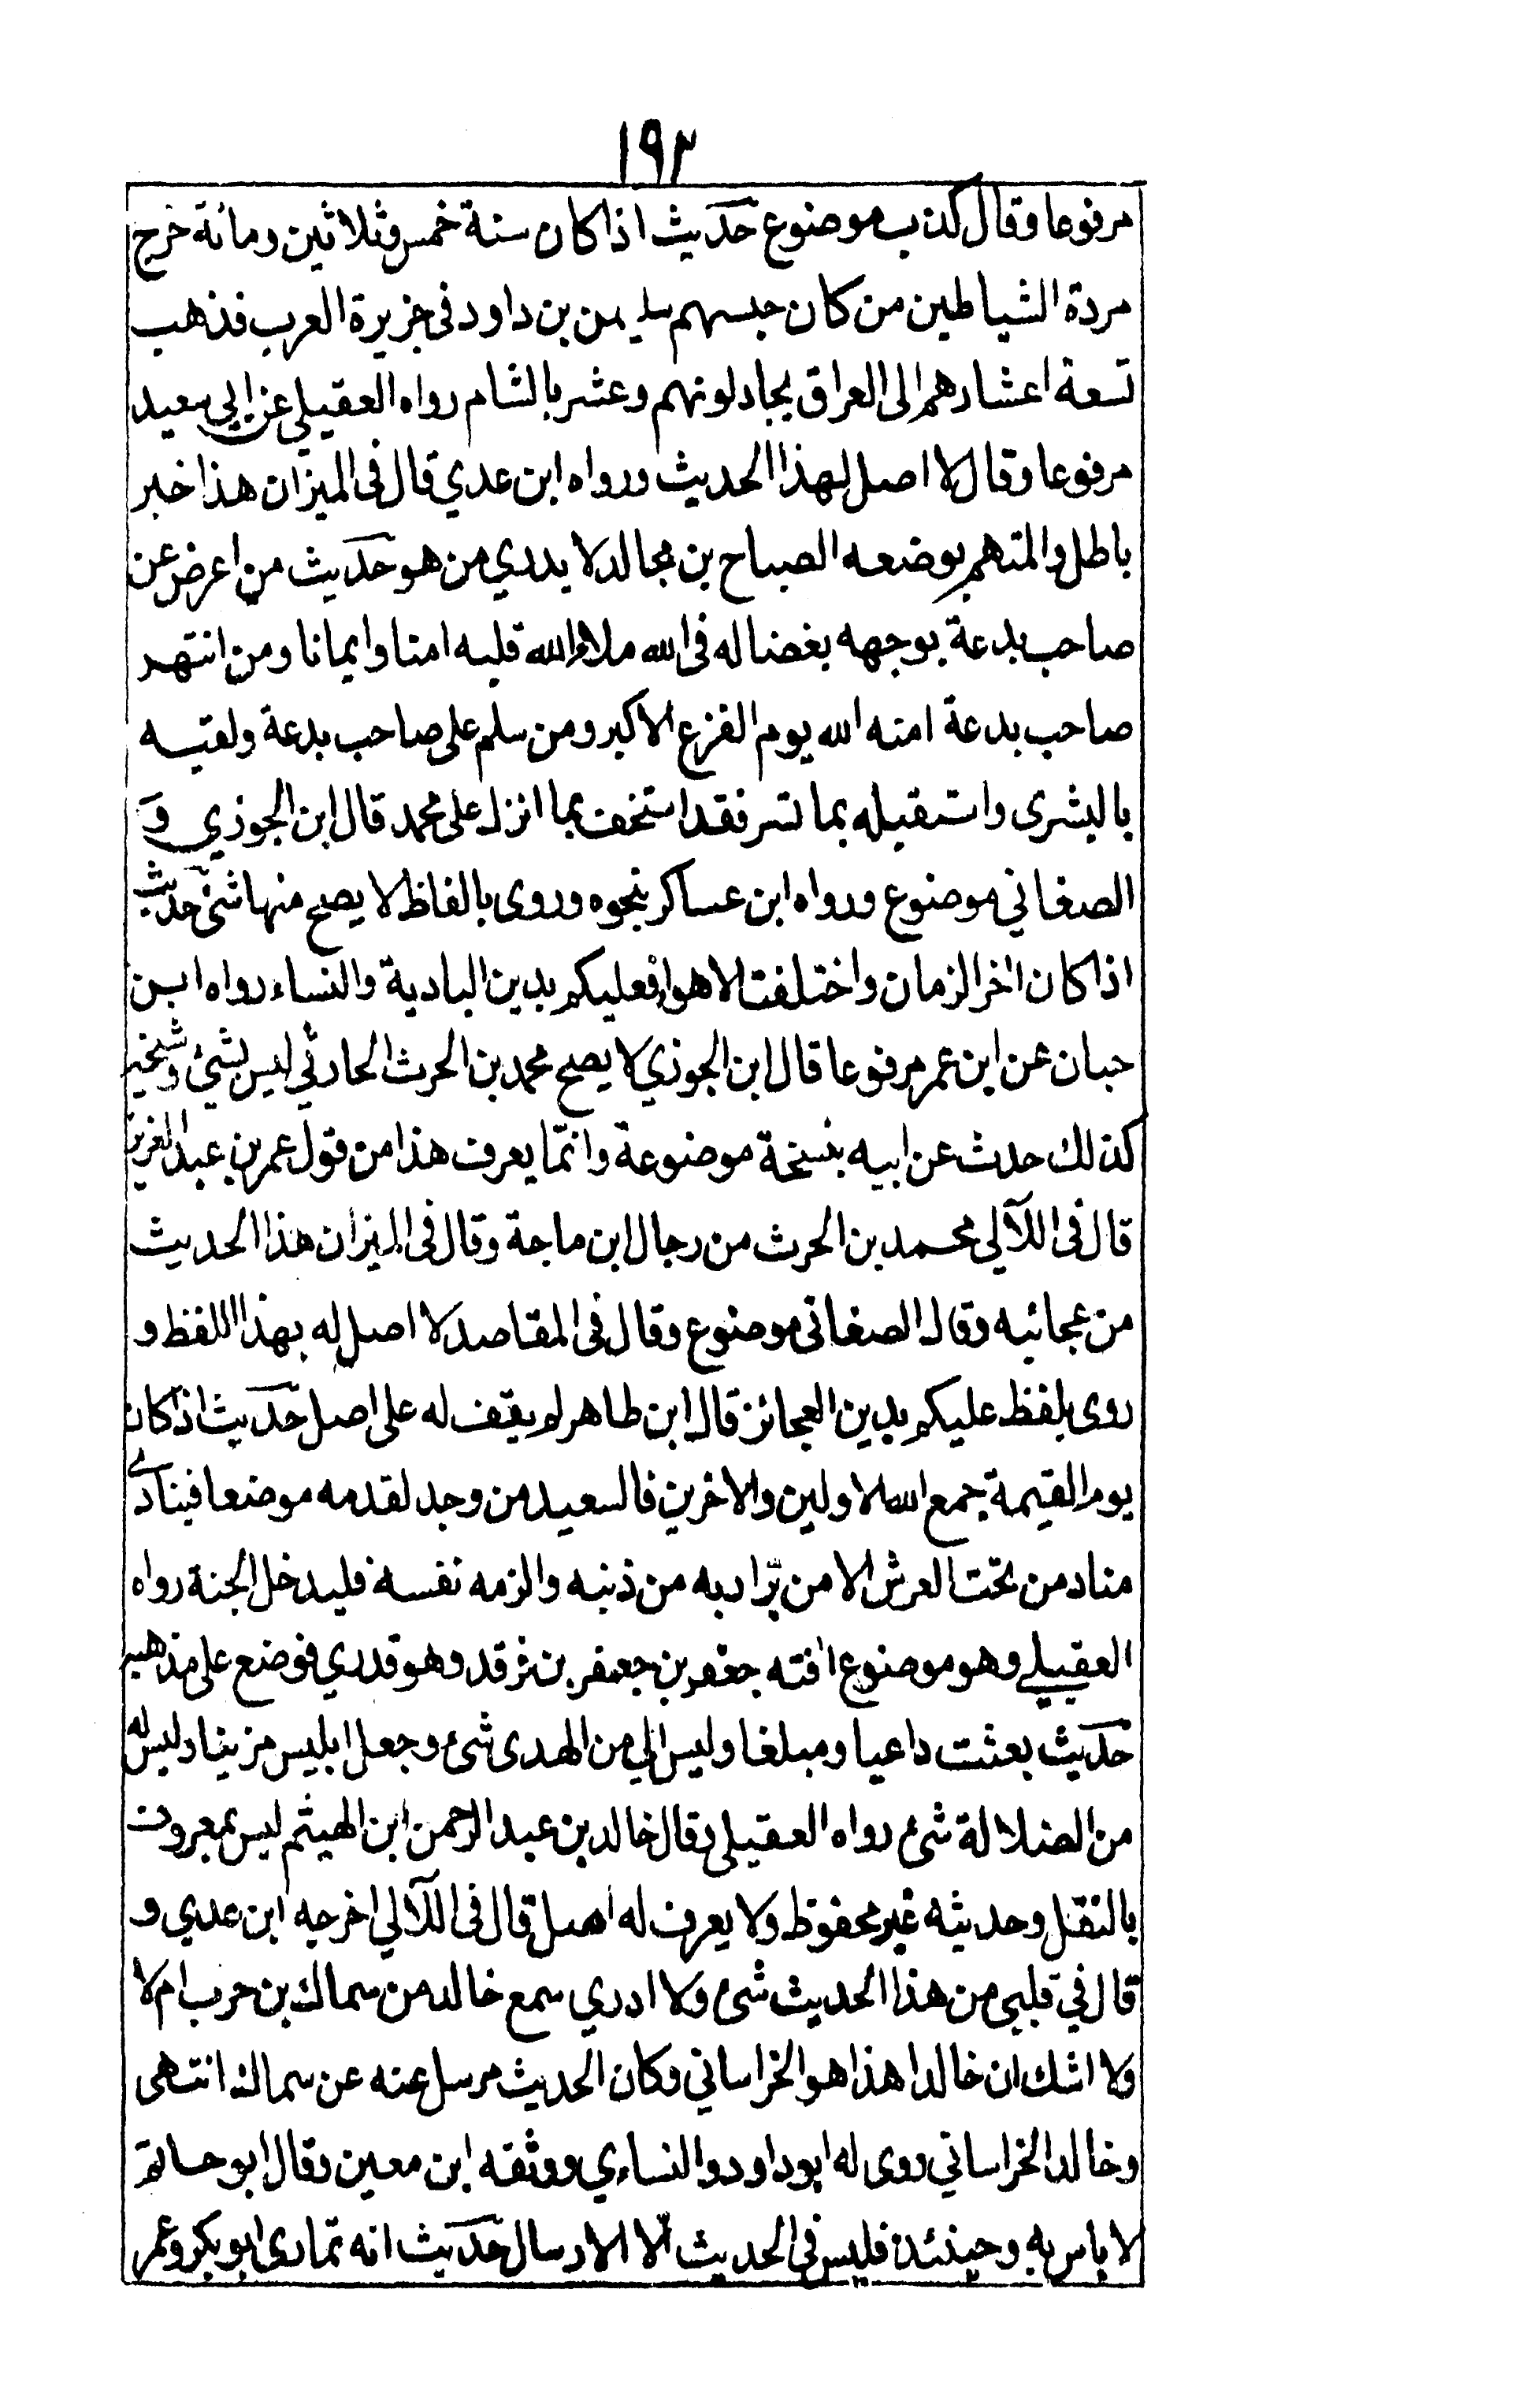 ١٩٣
مرفوعا وقال كذب موضوع حديث اذا كان سنة خمس وثلاثين ومائة خرج
مردة الشياطين من كان حبسهم سليمن بن داود فى جزيرة العرب فذهب
تسعة اعشارهم الى العراق يجادلونهم وعشر بالشام رواه العقيلي عن ابي سعيد
مرفوعا وقال لا اصل لهذا الحديث ورواه ابن عدي قال فى الميزان هذا خبر
باطل والمتهم بوضعه الصباح بن مجالد لا يدري من هو حديث من اعرض عن
صاحب بدعة بوجهه بغضا له فى الله ملاء الله قلبه امنا وايمانا ومن انتهر
صاحب بدعة امنه الله يوم الفزع الاكبر ومن سلم على صاحب بدعة ولقيه
بالبشرى واستقبله بما تسر فقد استخف بما انزل على محمد قال ابن الجوزي و
الصغاني موضوع ورواه ابن عساكر بنحوه وروى بالفاظ لا يصح منها شئ حديث
اذا كان اخر الزمان واختلفت الاهواء فعليكم بدين البادية والنساء رواه ابن
حبان عن ابن عمر مرفوعا قال ابن الجوزي لا يصح محمد بن الحرث الحارثي ليس بشئ وشيخه
كذلك حدث عن ابيه بنسخة موضوعة وانما يعرف هذا من قول عمر بن عبد العزيز
قال فى اللآلي محمد بن الحرث من رجال ابن ماجة وقال فى الميزان هذا الحديث
من عجائبه وقال الصغاني موضوع وقال فى المقاصد لا اصل له بهذا اللفظ و
روى بلفظ عليكم بدين العجائز قال ابن طاهر لم يقف له على اصل حديث اذا كان
يوم القيمة جمع الله الاولين والاخرين فالسعيد من وجد لقدمه موضعا فينادى
مناد من تحت العرش الا من برّا ربه من ذنبه والزمه نفسه فليدخل الجنة رواه
العقيلي وهو موضوع افته جعفر بن جعفر بن فرقد وهو قدري فوضع على مذهبه
حديث بعثت داعيا ومبلغا وليس الي من الهدى شئ وجعل ابليس مزينا وليس له
من الضلالة شئ رواه العقيلي وقال خالد بن عبد الرحمن ابن الهيثم ليس بمعروف
بالنقل وحديثه غير محفوظ ولا يعرف له اصل قال فى اللآلي اخرجه ابن عدي و
قال في قلبي من هذا الحديث شئ ولا ادري سمع خالد من سماك بن حرب ام لا
ولا اشك ان خالدا هذا هو الخراساني وكان الحديث مرسل عنه عن سماك انتهى
وخالد الخراساني روى له ابو داود والنساءي ووثقه ابن معين وقال ابو حاتم
لا باس به وحينئذ فليس فى الحديث الا الارسال حديث انه تمارى ابو بكر وعمر